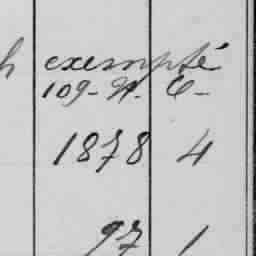 h exempté
109- N. C-
1878 4
97 1